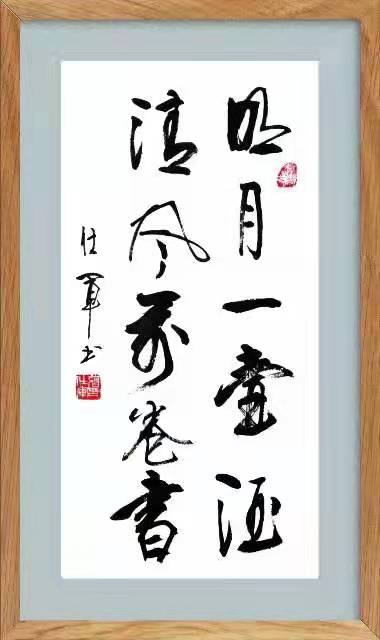 明月一壶酒
清风万卷書
仕軍书